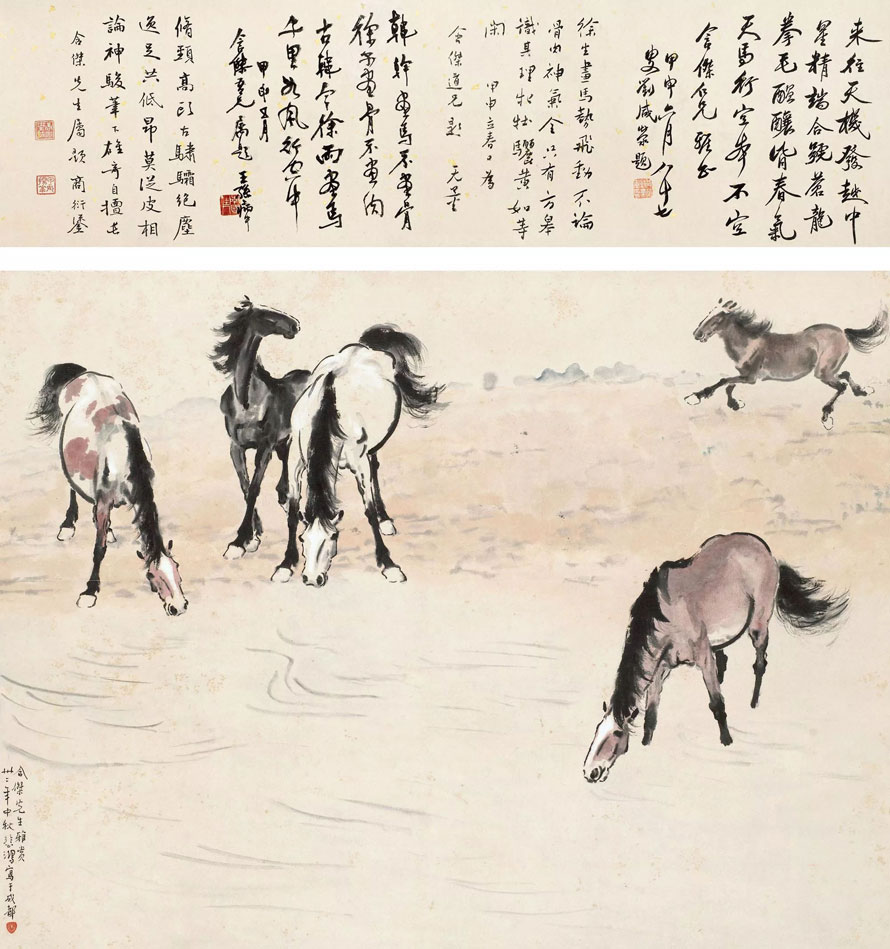 来往天機發越中
星精端合號蒼龍
拳毛醖釀皆春氣
天馬行空本不空
含傑仁兄 雅正
甲申六月八十七
叟劉咸滎題
徐生畫馬勢飛動不論
骨肉神氣全只有方皋
識其理牝牡驪黃如等
閑 甲申立春日為
含傑道兄題 无量
韓幹畫馬不畫骨
徐畫骨不畫肉
古韓今徐兩畫馬
千里如風行空中
甲申五月
含傑吾兄屬題
脩頸高頭古驌驦絕塵
逸足共低昂莫從皮相
論神駿筆下雄奇自擅長
含傑先生屬題 商衍鎏
含傑先生雅賞
卅二年中秋悲鴻寫于成都